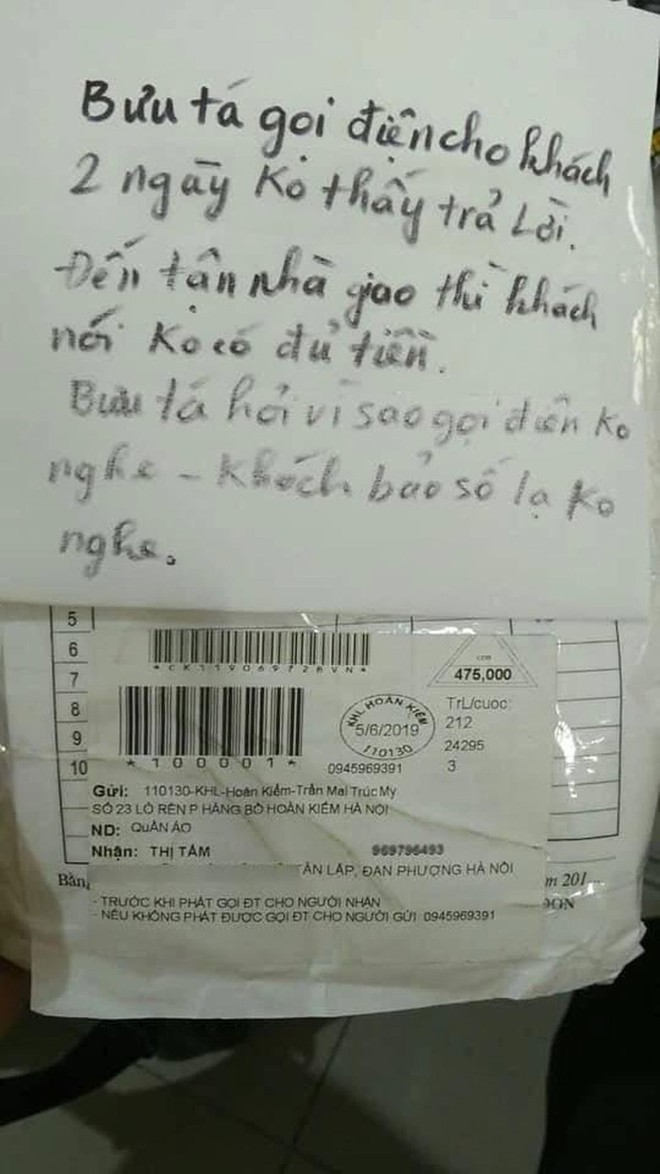 Bưu tá gọi điện cho khách
2 ngày Ko thấy trả Lời.
Đến tận nhà giao thì khách
nói Ko có đủ tiền.
Bưu tá hỏi vì sao gọi điện Ko
nghe - Khách bảo số lạ Ko
nghe.
5
6
7
8
9
10
*CK119069728VN*
COD
475,000
*100001*
KHL HOÀN KIẾM
5/6/2019
110130
0945969391
TrL/cuoc:
212
24295
3
Gửi: 110130-KHL-Hoàn Kiếm-Trần Mai Trúc My
SỐ 23 LÒ RÈN P HÀNG BỒ HOÀN KIẾM HÀ NỘI
ND: QUẦN ÁO
Nhận: THỊ TÁM 969796493
ÂN LẬP, ĐAN PHƯỢNG HÀ NỘI
Bằng
m 201...
- TRƯỚC KHI PHÁT GỌI ĐT CHO NGƯỜI NHẬN
- NẾU KHÔNG PHÁT ĐƯỢC GỌI ĐT CHO NGƯỜI GỬI 0945969391